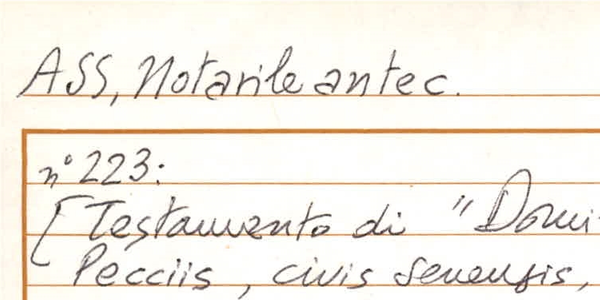 ASS, Notarile antec.
n° 223:
[Testamento di "Domi
Pecciis, civis senensis,